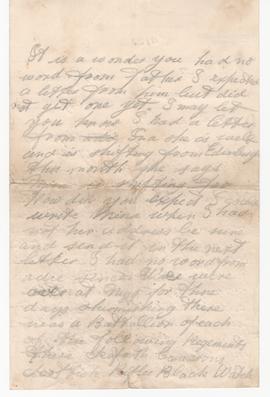 It is a wonder you had no
word from Father I expected
a letter from him but did
not get one yet. I may let
you know I had a letter
from Ina she is well
and is shifting from Edinburgh
this month she says
is shifting too
How did you expect I
write when I had
not her address be sure
and send it in the next
letter I had no word from
since We were
over at for three
days skirmishing there
was a Battallion of each
of the following Regiments
there Seaforth Camerons
Scottish Rifles Black Watch